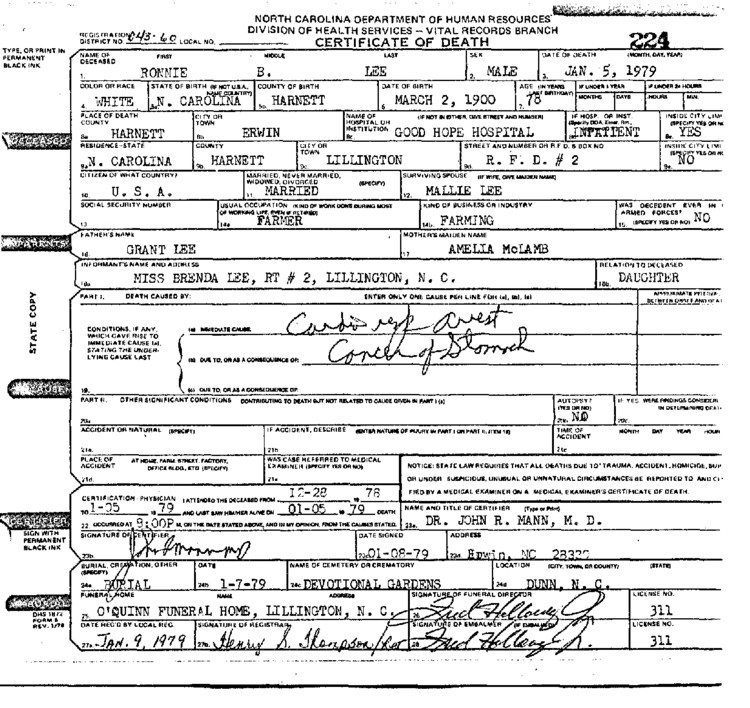 NORTH CAROLINA DEPARTMENT OF HUMAN RESOURCES
DIVISION OF HEALTH SERVICES – VITAL RECORDS BRANCH
REGISTRATION DISTRICT NO. 043-60 LOCAL NO. CERTIFICATE OF DEATH 224
TYPE, OR PRINT IN PERMANENT BLACK INK
NAME OF DECEASED FIRST MIDDLE LAST SEX DATE OF DEATH (MONTH, DAY, YEAR)
1. RONNIE B. LEE 2. MALE 3. JAN. 5, 1979
COLOR OR RACE STATE OF BIRTH (IF NOT U.S.A. NAME COUNTRY) COUNTY OF BIRTH DATE OF BIRTH AGE (IN YEARS LAST BIRTHDAY) IF UNDER 1 YEAR IF UNDER 24 HOURS
MONTHS DAYS HOURS MIN.
4. WHITE N. CAROLINA HARNETT 6. MARCH 2, 1900 78
PLACE OF DEATH COUNTY CITY OR TOWN NAME OF HOSPITAL OR INSTITUTION (IF NOT IN EITHER, GIVE STREET AND NUMBER) IF HOSP. OR INST. INSIDE CITY LIM
8a. HARNETT 8b. ERWIN 8c. GOOD HOPE HOSPITAL INPATIENT YES
RESIDENCE-STATE COUNTY CITY OR TOWN STREET AND NUMBER OR R.F.D. & BOX NO INSIDE CITY LIM
9a. N. CAROLINA 9b. HARNETT 9c. LILLINGTON 9d. R. F. D. # 2 NO
CITIZEN OF WHAT COUNTRY? MARRIED, NEVER MARRIED, WIDOWED, DIVORCED (SPECIFY) SURVIVING SPOUSE (IF WIFE, GIVE MAIDEN NAME)
10. U. S. A. 11. MARRIED 12. MALLIE LEE
SOCIAL SECURITY NUMBER USUAL OCCUPATION (KIND OF WORK DONE DURING MOST OF WORKING LIFE, EVEN IF RETIRED) KIND OF BUSINESS OR INDUSTRY WAS DECEDENT EVER IN ARMED FORCES?
13. 14a. FARMER 14b. FARMING 15. (SPECIFY YES OR NO) NO
FATHER'S NAME MOTHER'S MAIDEN NAME
16. GRANT LEE 17. AMELIA McLAMB
INFORMANT'S NAME AND ADDRESS RELATION TO DECEASED
18a. MISS BRENDA LEE, RT # 2, LILLINGTON, N. C. 18b. DAUGHTER
PART I. DEATH CAUSED BY: ENTER ONLY ONE CAUSE PER LINE FOR (a), (b), (c)
STATE COPY
CONDITIONS, IF ANY, WHICH GAVE RISE TO IMMEDIATE CAUSE (a), STATING THE UNDERLYING CAUSE LAST
(a) IMMEDIATE CAUSE Cardio resp arrest
(b) DUE TO, OR AS A CONSEQUENCE OF: Cancer of Stomach
19. (c) DUE TO, OR AS A CONSEQUENCE OF:
PART II. OTHER SIGNIFICANT CONDITIONS CONTRIBUTING TO DEATH BUT NOT RELATED TO CAUSE GIVEN IN PART I (a) AUTOPSY? (YES OR NO) IF YES, WERE FINDINGS CONSIDER
20a. NO 20c.
ACCIDENT OR NATURAL (SPECIFY) IF ACCIDENT, DESCRIBE (ENTER NATURE OF INJURY IN PART I OR PART II, ITEM 18) TIME OF ACCIDENT MONTH DAY YEAR HOUR
21a. 21b. 21c
PLACE OF ACCIDENT AT HOME, FARM STREET, FACTORY, OFFICE BLDG., ETC (SPECIFY) WAS CASE REFERRED TO MEDICAL EXAMINER (SPECIFY YES OR NO)
NOTICE: STATE LAW REQUIRES THAT ALL DEATHS DUE TO TRAUMA, ACCIDENT, HOMICIDE,
OR UNDER SUSPICIOUS, UNUSUAL OR UNNATURAL CIRCUMSTANCES BE REPORTED TO AND
FIED BY A MEDICAL EXAMINER ON A MEDICAL EXAMINER'S CERTIFICATE OF DEATH.
CERTIFICATION-PHYSICIAN I ATTENDED THE DECEASED FROM 12-28 78
TO 1-05 79 AND LAST SAW HIM/HER ALIVE ON 01-05 79 DEATH
22. OCCURRED AT 9:00P M. ON THE DATE STATED ABOVE, AND IN MY OPINION, FROM THE CAUSES STATED.
NAME AND TITLE OF CERTIFIER (Type or Print)
23a. DR. JOHN R. MANN, M. D.
SIGN WITH PERMANENT BLACK INK
SIGNATURE OF CERTIFIER DATE SIGNED ADDRESS
23b. 01-08-79 Erwin, NC
BURIAL, CREMATION, OTHER (SPECIFY) DATE NAME OF CEMETERY OR CREMATORY LOCATION (CITY, TOWN, OR COUNTY) (STATE)
24a. BURIAL 24b. 1-7-79 24c. DEVOTIONAL GARDENS 24d. DUNN, N. C.
FUNERAL HOME NAME ADDRESS SIGNATURE OF FUNERAL DIRECTOR LICENSE NO.
25. O'QUINN FUNERAL HOME, LILLINGTON, N. C. 26. Fred Holloway Jr. 311
DHS 1872 FORM 8 REV. 1/78
DATE REC'D BY LOCAL REG. SIGNATURE OF REGISTRAR SIGNATURE OF EMBALMER (IF EMBALMED) LICENSE NO.
27a. JAN. 9, 1979 27b. Henry S. Thompson 28. Fred Holloway Jr. 311